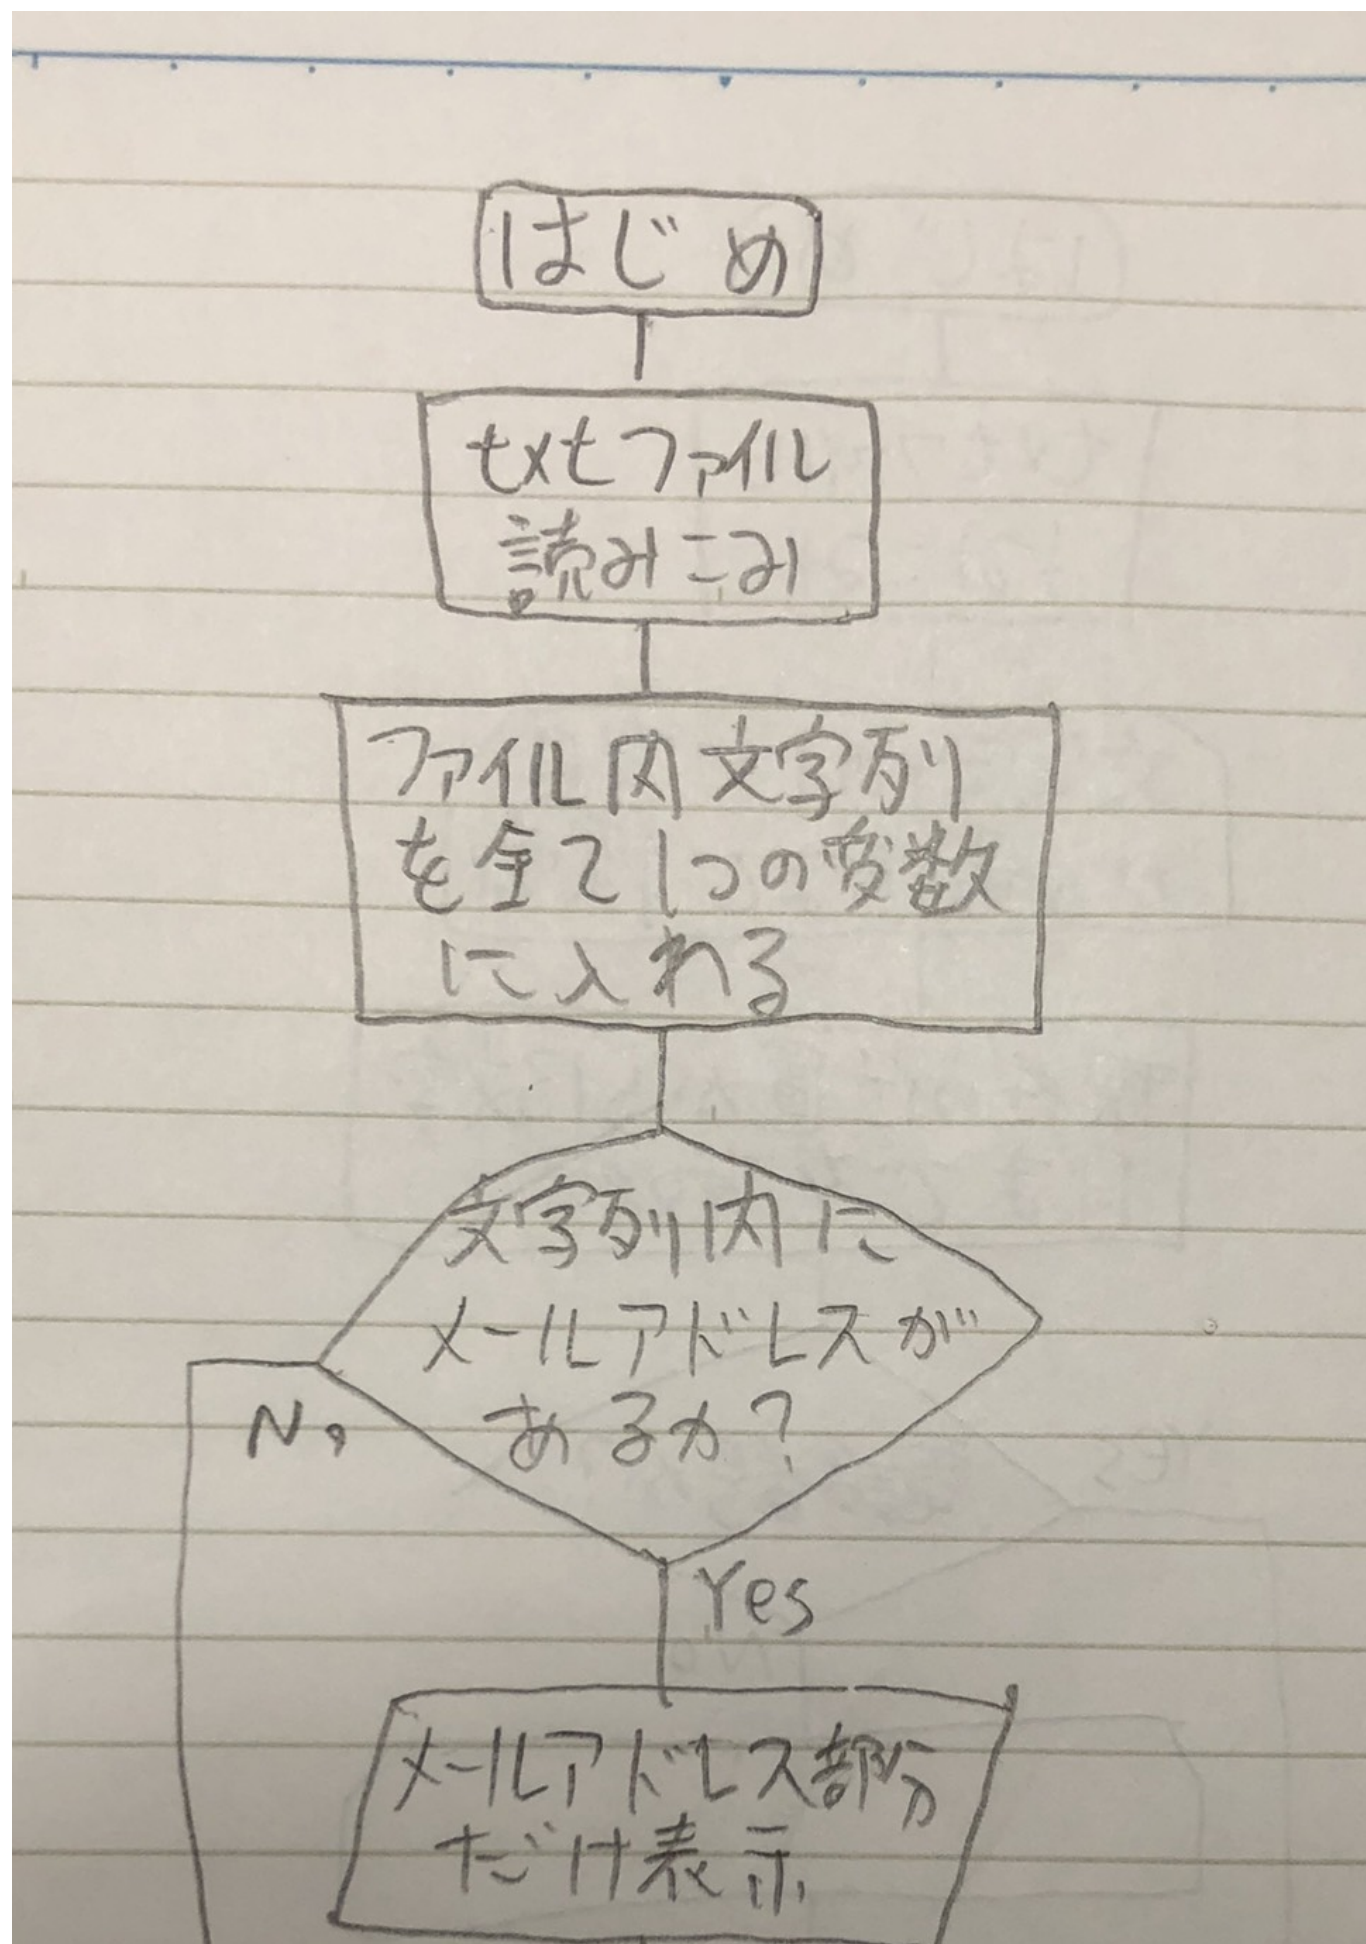 はじめ
txtファイル
読みこみ
ファイル内文字列
を全て1つの変数
に入れる
文字列内に
メールアドレスが
あるか?
No
Yes
メールアドレス部分
だけ表示